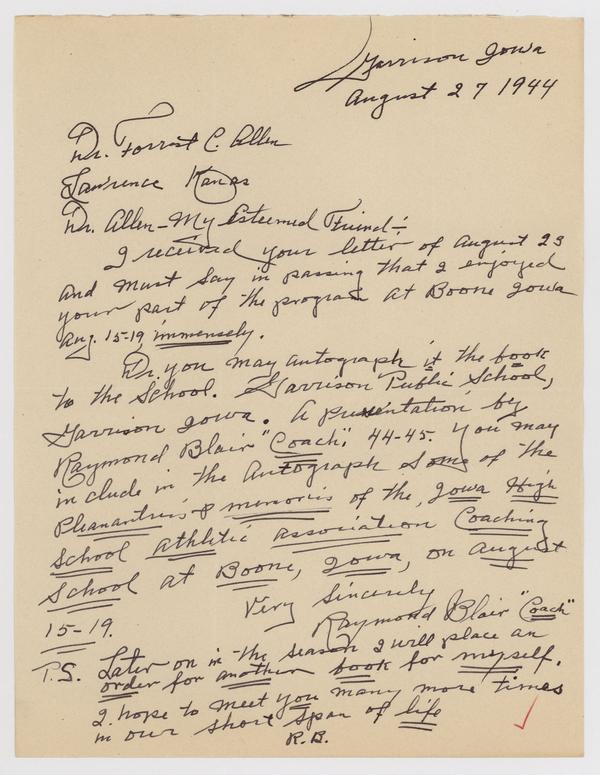 Garrison Iowa
August 27 1944
Dr. Forrest C. Allen
Lawrence Kansas
Dr. Allen - My Esteemed Friend :-
I received your letter of August 23
and must say in passing that I enjoyed
your part of the program at Boone Iowa
Aug. 15-19, immensely.
Dr. you may autograph it the book
to the School. Garrison Public School,
Garrison Iowa. A presentation by
Raymond Blair "Coach", 44-45. You may
include in the Autograph some of the
Pleasantries & memories of the, Iowa High
School Athletic Association Coaching
School at Boone, Iowa, on August
15-19.
Very Sincerely
Raymond Blair "Coach"
P.S. Later on in the season I will place an
order for another book for myself.
I hope to meet you many more times
in our short span of life
R.B.